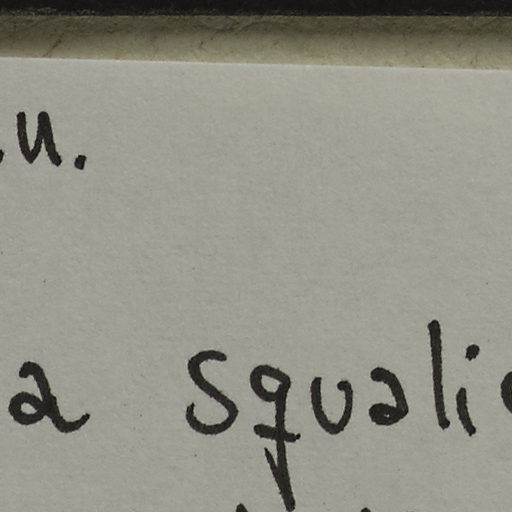 .u.
a squali